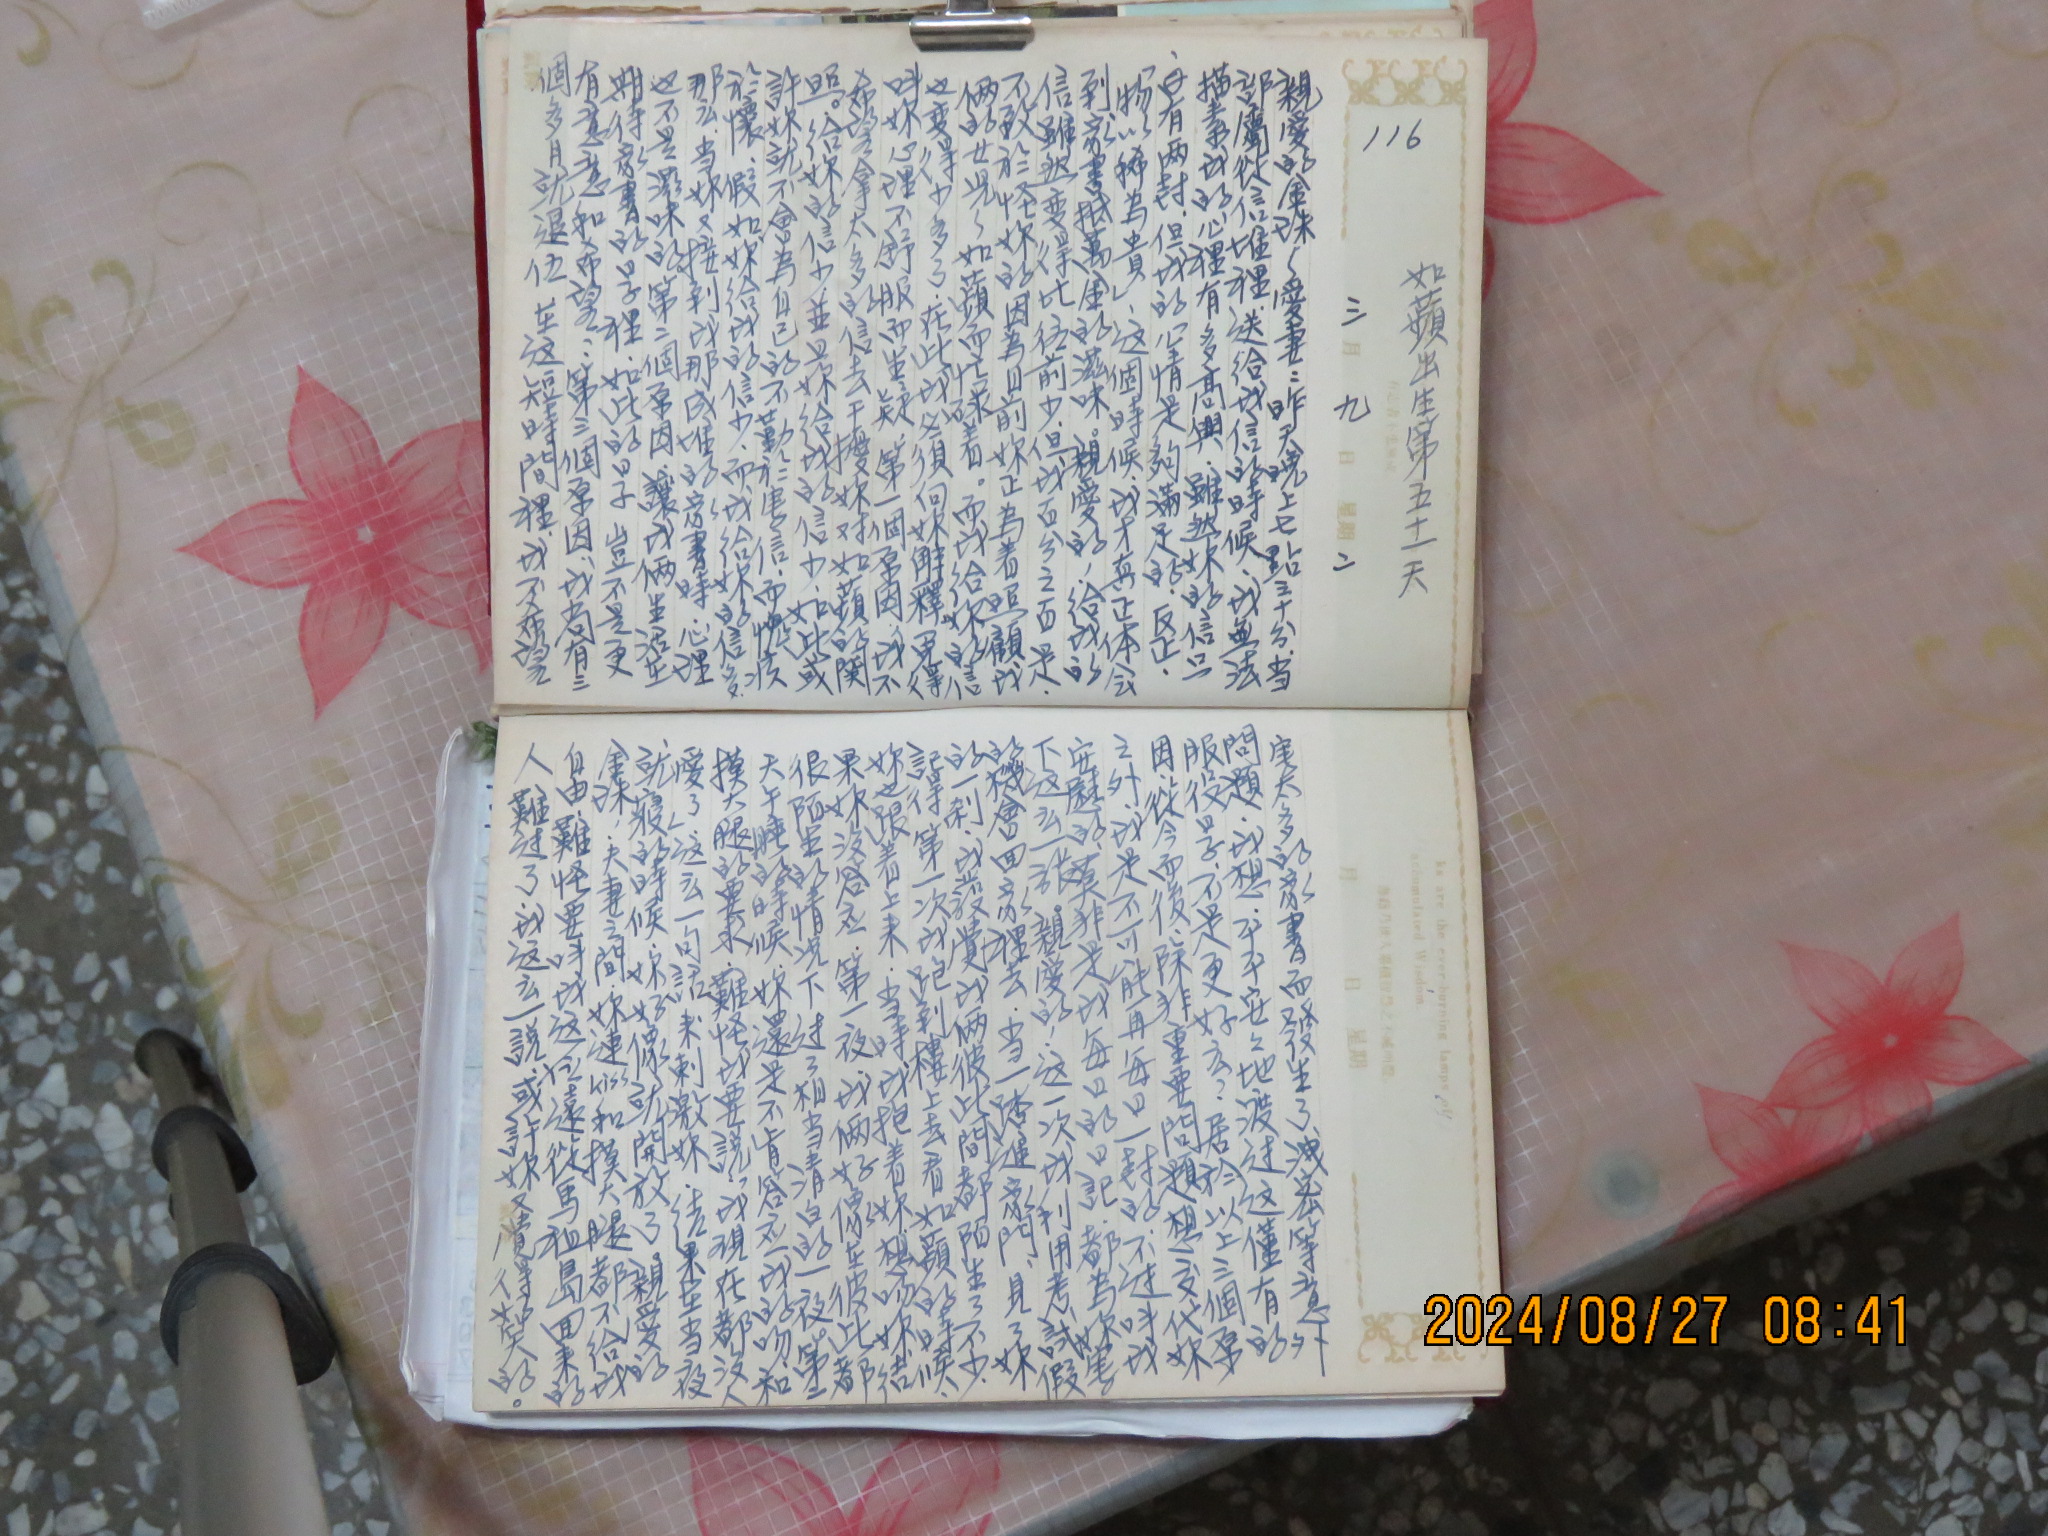 116
如蘋出生第五十一天
三月九日 星期二
親愛的金珠、愛妻：昨天晚上七點三十分，當
部屬從信堆裡，送給我信的時候，我無法
描素我的心裡有多高興，雖然妳的信只
有兩封，但我的心情是夠滿足的，反正，
「物以稀為貴」，這個時候，我才真正体会
到家書抵萬金的滋味。親愛的，給我的
信雖然變得比從前少，但我百分之百是
不敢於怪妳的，因為目前妳正為着照顧我
倆的女兒、如蘋而忙碌着。而我給妳的信
也變得少多了，在此，我必須向妳解釋，免得
叫妳心裡不舒服而生疑，第一個原因，我不
希望拿太多的信去干擾妳對如蘋的關
照。給妳的信少並是妳給我的信少，如此或
許妳就不會為自己的不勤於写信，而愧疚
於懷，假如妳給我的信少，而我給妳的信多，
那么，當妳又接到我那成堆的家書時，心裡
也不是滋味的，第二個原因，讓我倆生活在
期待家書的日子裡，如此的日子豈不是更
有意思和希望：第三個原因，我尚有三
個多月就退伍，在這短時間裡，我不希望
ks are the ever-burning lamps of
accumulated Wisdom.
月 日 星期
寄太多的家書而發生了洩密等意外
問題，我想，平平安安地渡过這僅有的
服役日子，不是更好么？居於以上三個原
因，從今而後，除非重要問題想交代妳
之外，我是不可能再每日一封的，不过，叫我
安慰的，莫非是我每日的日記，都為妳写
下這么一張。親愛的，這一次我利用考試假
的機會回家裡去，当一踏進家門，見了妳
的一刹，我當發覺我倆彼此間都陌生了不少，
記得第一次我跑到樓上去看如蘋的時候，
妳也跟着上来，当時我抱着妳想吻妳，結
果妳沒答应，第一夜，我倆好像在彼此都
很陌生的情况下过了相当清白的一夜，第二
天午睡的時候，妳還是不肯答应我的吻和
摸大腿的要求，難怪我要說「我現在都沒人
愛了」這么一句話来刺激妳，結果在当夜
就寢的時候，妳好像就開放了，親愛的
金珠，夫妻之間，妳連kiss和摸大腿都不給我
自由，難怪要叫我這位遠從馬祖島回来的
人難过了，我這么一說，或許妳又覺得好笑的。
2024/08/27 08:41